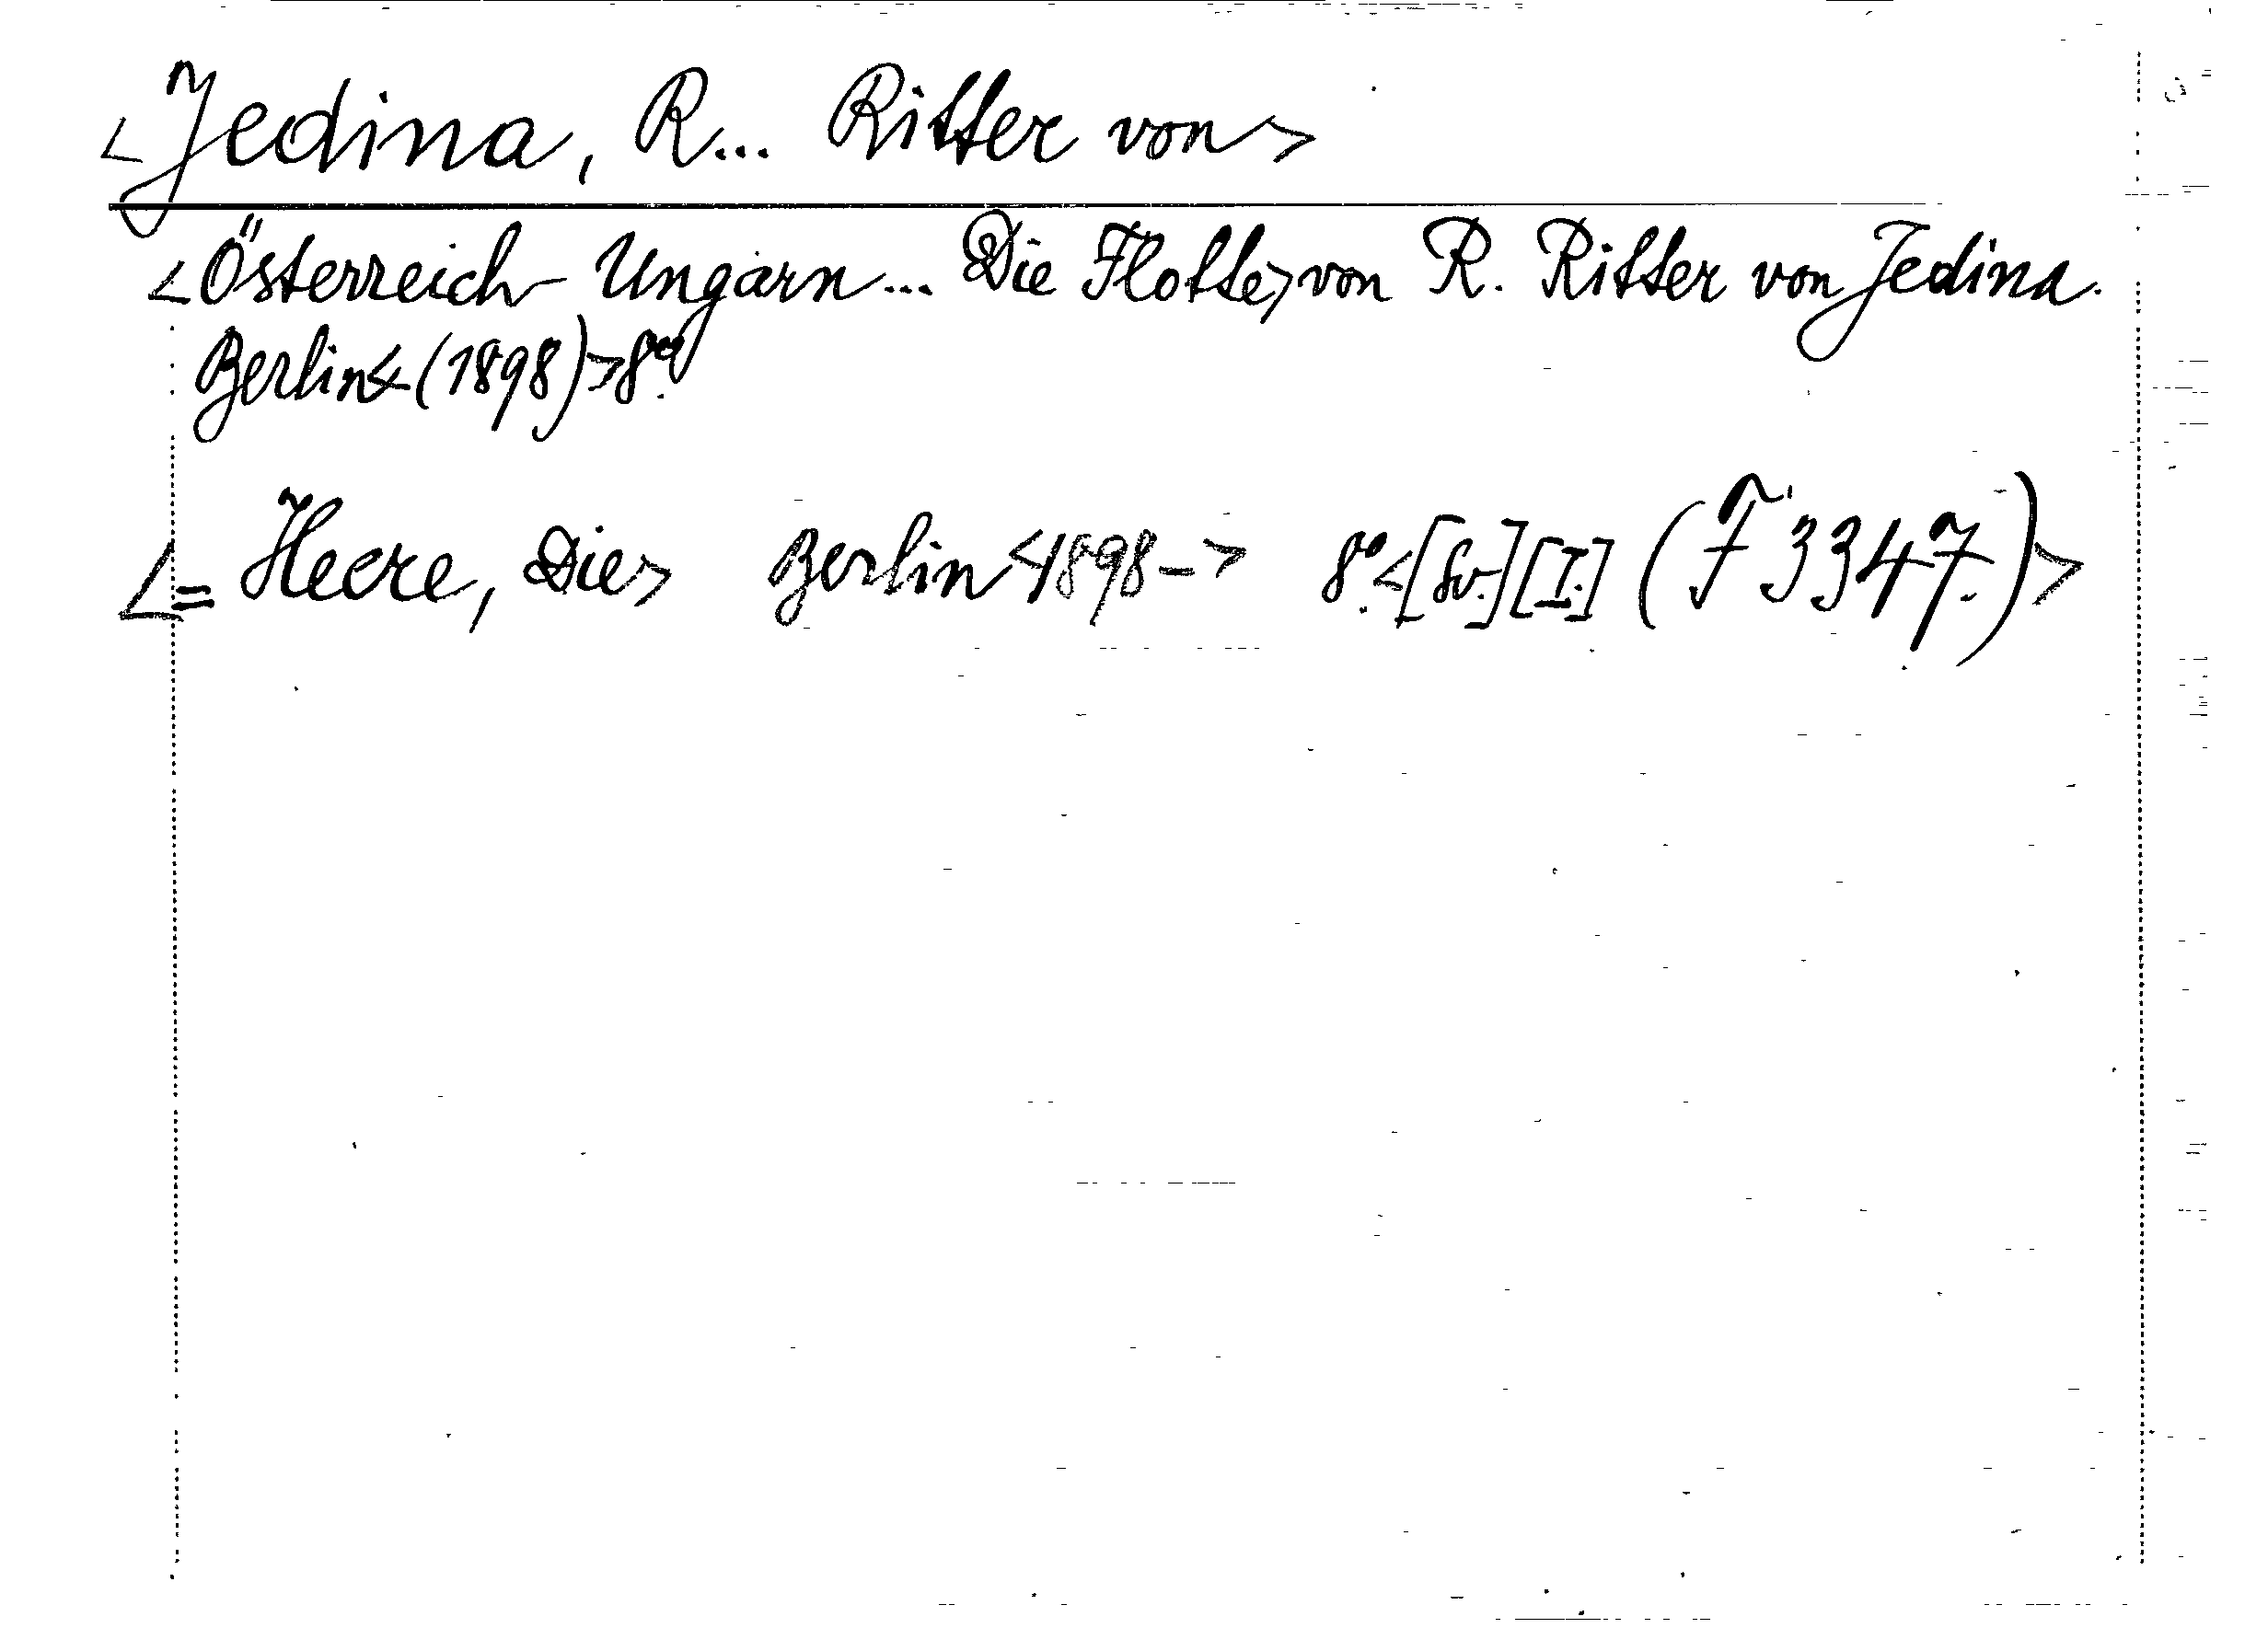 <Jedina, R... Ritter von>
<Österreich-Ungarn... Die Flotte> von R. Ritter von Jedina.
Berlin <(1898)> 8º.
<= Heere, Die> Berlin <1898-> 8º. <[Sv.] [I.] (F 3347.)>